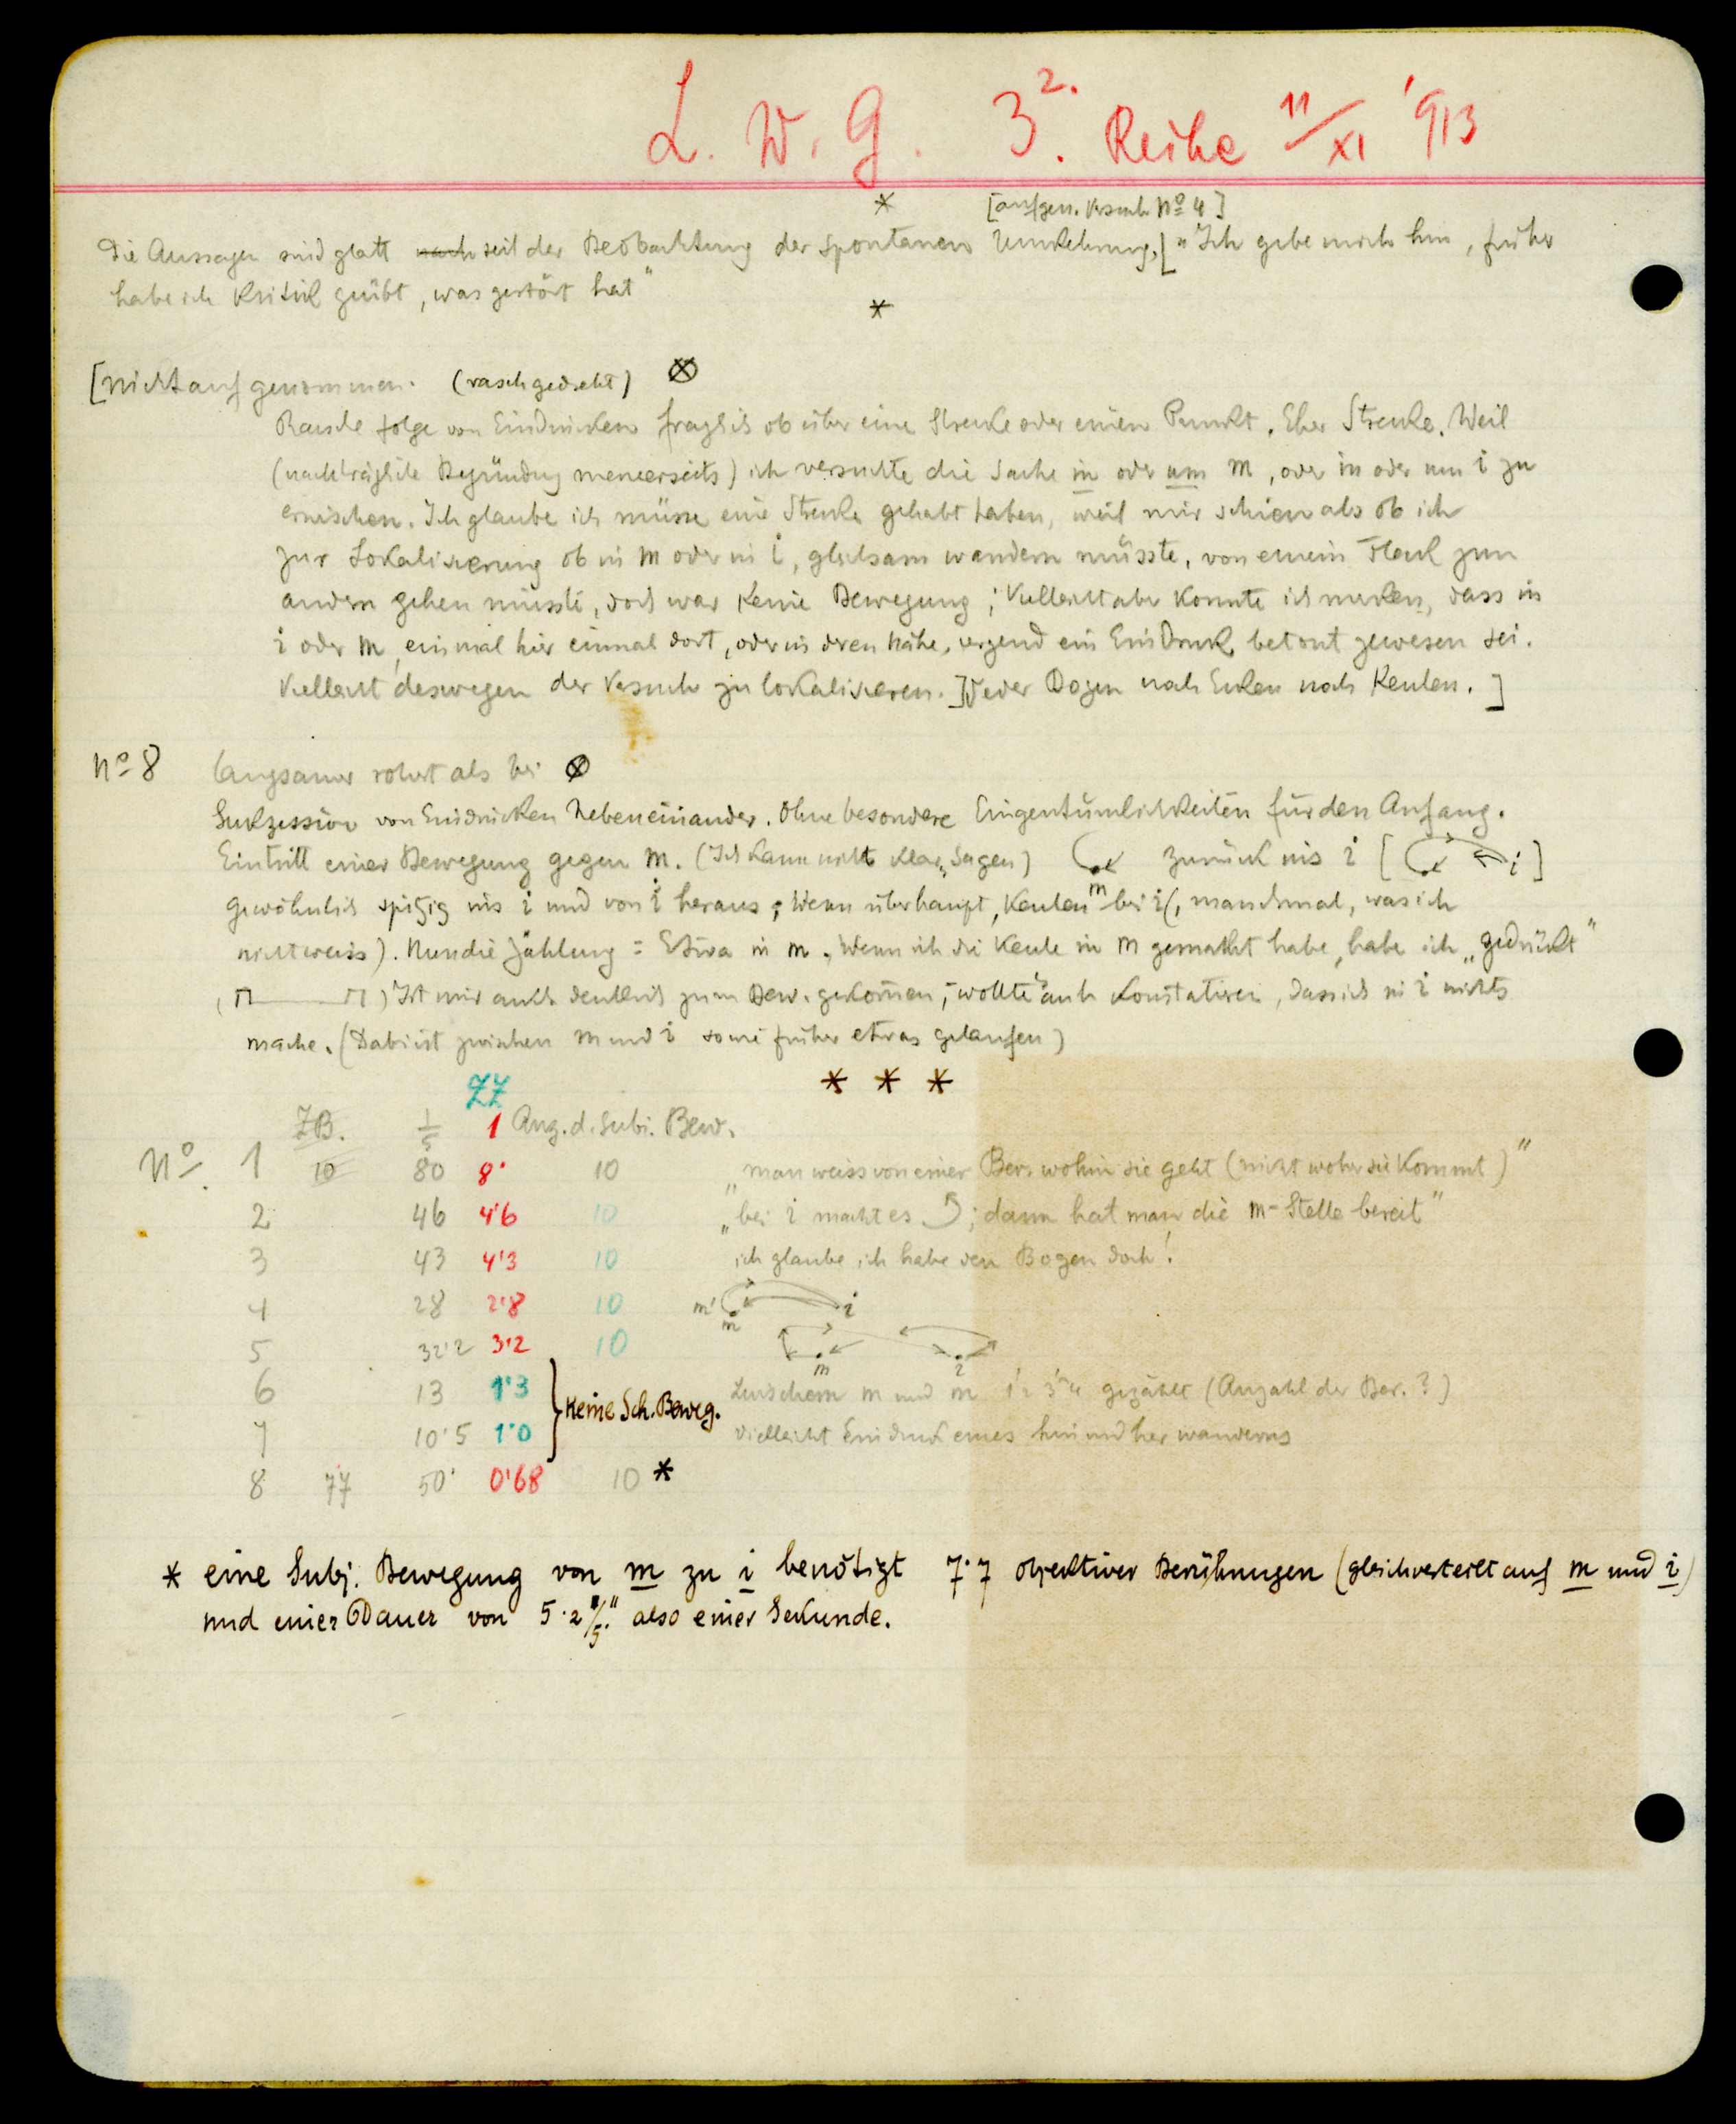 L. W. G. 3². Reihe 11/XI '913
* [aufgen. Versuch Nº 4]
Die Aussagen sind glatt nach seit der Beobachtung der spontanen Umkehrung, [„Ich gebe mich hin, früher
habe ich Kritik geübt, was gestört hat"
*
[Nicht aufgenommen. (rasch gedreht) ⊗
Rasche Folge von Eindrücken fraglich ob über eine Strecke oder einen Punkt. Eher Strecke. Weil
(nachträgliche Begründung meinerseits) ich versuchte die Sache in oder um m, oder in oder um i zu
erwischen. Ich glaube ich müsse eine Strecke gehabt haben, weil mir schien als ob ich
zur Lokalisierung ob in m oder in i, gleichsam wandern müsste, von einem Fleck zum
andern gehen müsste, doch war keine Bewegung; Vielleicht aber konnte ich merken, dass in
i oder m, einmal hier einmal dort, oder in deren Nähe, irgend ein Eindruck betont gewesen sei.
Vielleicht deswegen der Versuch zu lokalisieren.] Weder Bogen noch Ecken noch Keulen.]
Nº 8 langsamer rotiert als bei ⊗
Sukzession von Eindrücken Nebeneinander. Ohne besondere Eingentümlichkeiten für den Anfang.
Eintritt einer Bewegung gegen m. (Ich kann nicht klar sagen) zurück ins i [ i ]
m
gewöhnlich spitzig ins i und von i heraus; Wenn überhaupt, Keulen bei i (, manchmal, was ich
nicht weiss). Nun die Zählung: Etwa in m. Wenn ich die Keule in m gemacht habe, habe ich „gedrückt"
( ) Ist mir auch deutlich zum Bew. gekommen, wollte auch konstatiren, dass ich in i nichts
mache. (Dabei ist zwischen m und i sowie früher etwas gelaufen)
* * *
ZZ
ZB. 1/5 1 Ang. d. Subj. Bew.
Nº. 1 10 80 8· 10 „man weiss von einer Ber. wohin sie geht (nicht woher sie kommt)"
2 46 4'6 10 „bei i macht es ; dann hat man die m-Stelle bereit"
3 43 4'3 10 ich glaube ich habe den Bogen doch!
4 28 2'8 10 m' m i
5 32'2 3'2 10 m i
6 13 1'3 Zwischem m und m 1' 2 3' 4 gezählt (Anzahl der Ber.?)
keine Sch. Beweg.
7 10'5 1'0 Vielleicht Eindruck eines hin und her wanderns
8 77 50' 0'68 10 *
* eine Subj. Bewegung von m zu i benötigt 7·7 objektiver Berührungen (gleichverteilt auf m und i)
und einer Dauer von 5·2 1/5" also einer Sekunde.